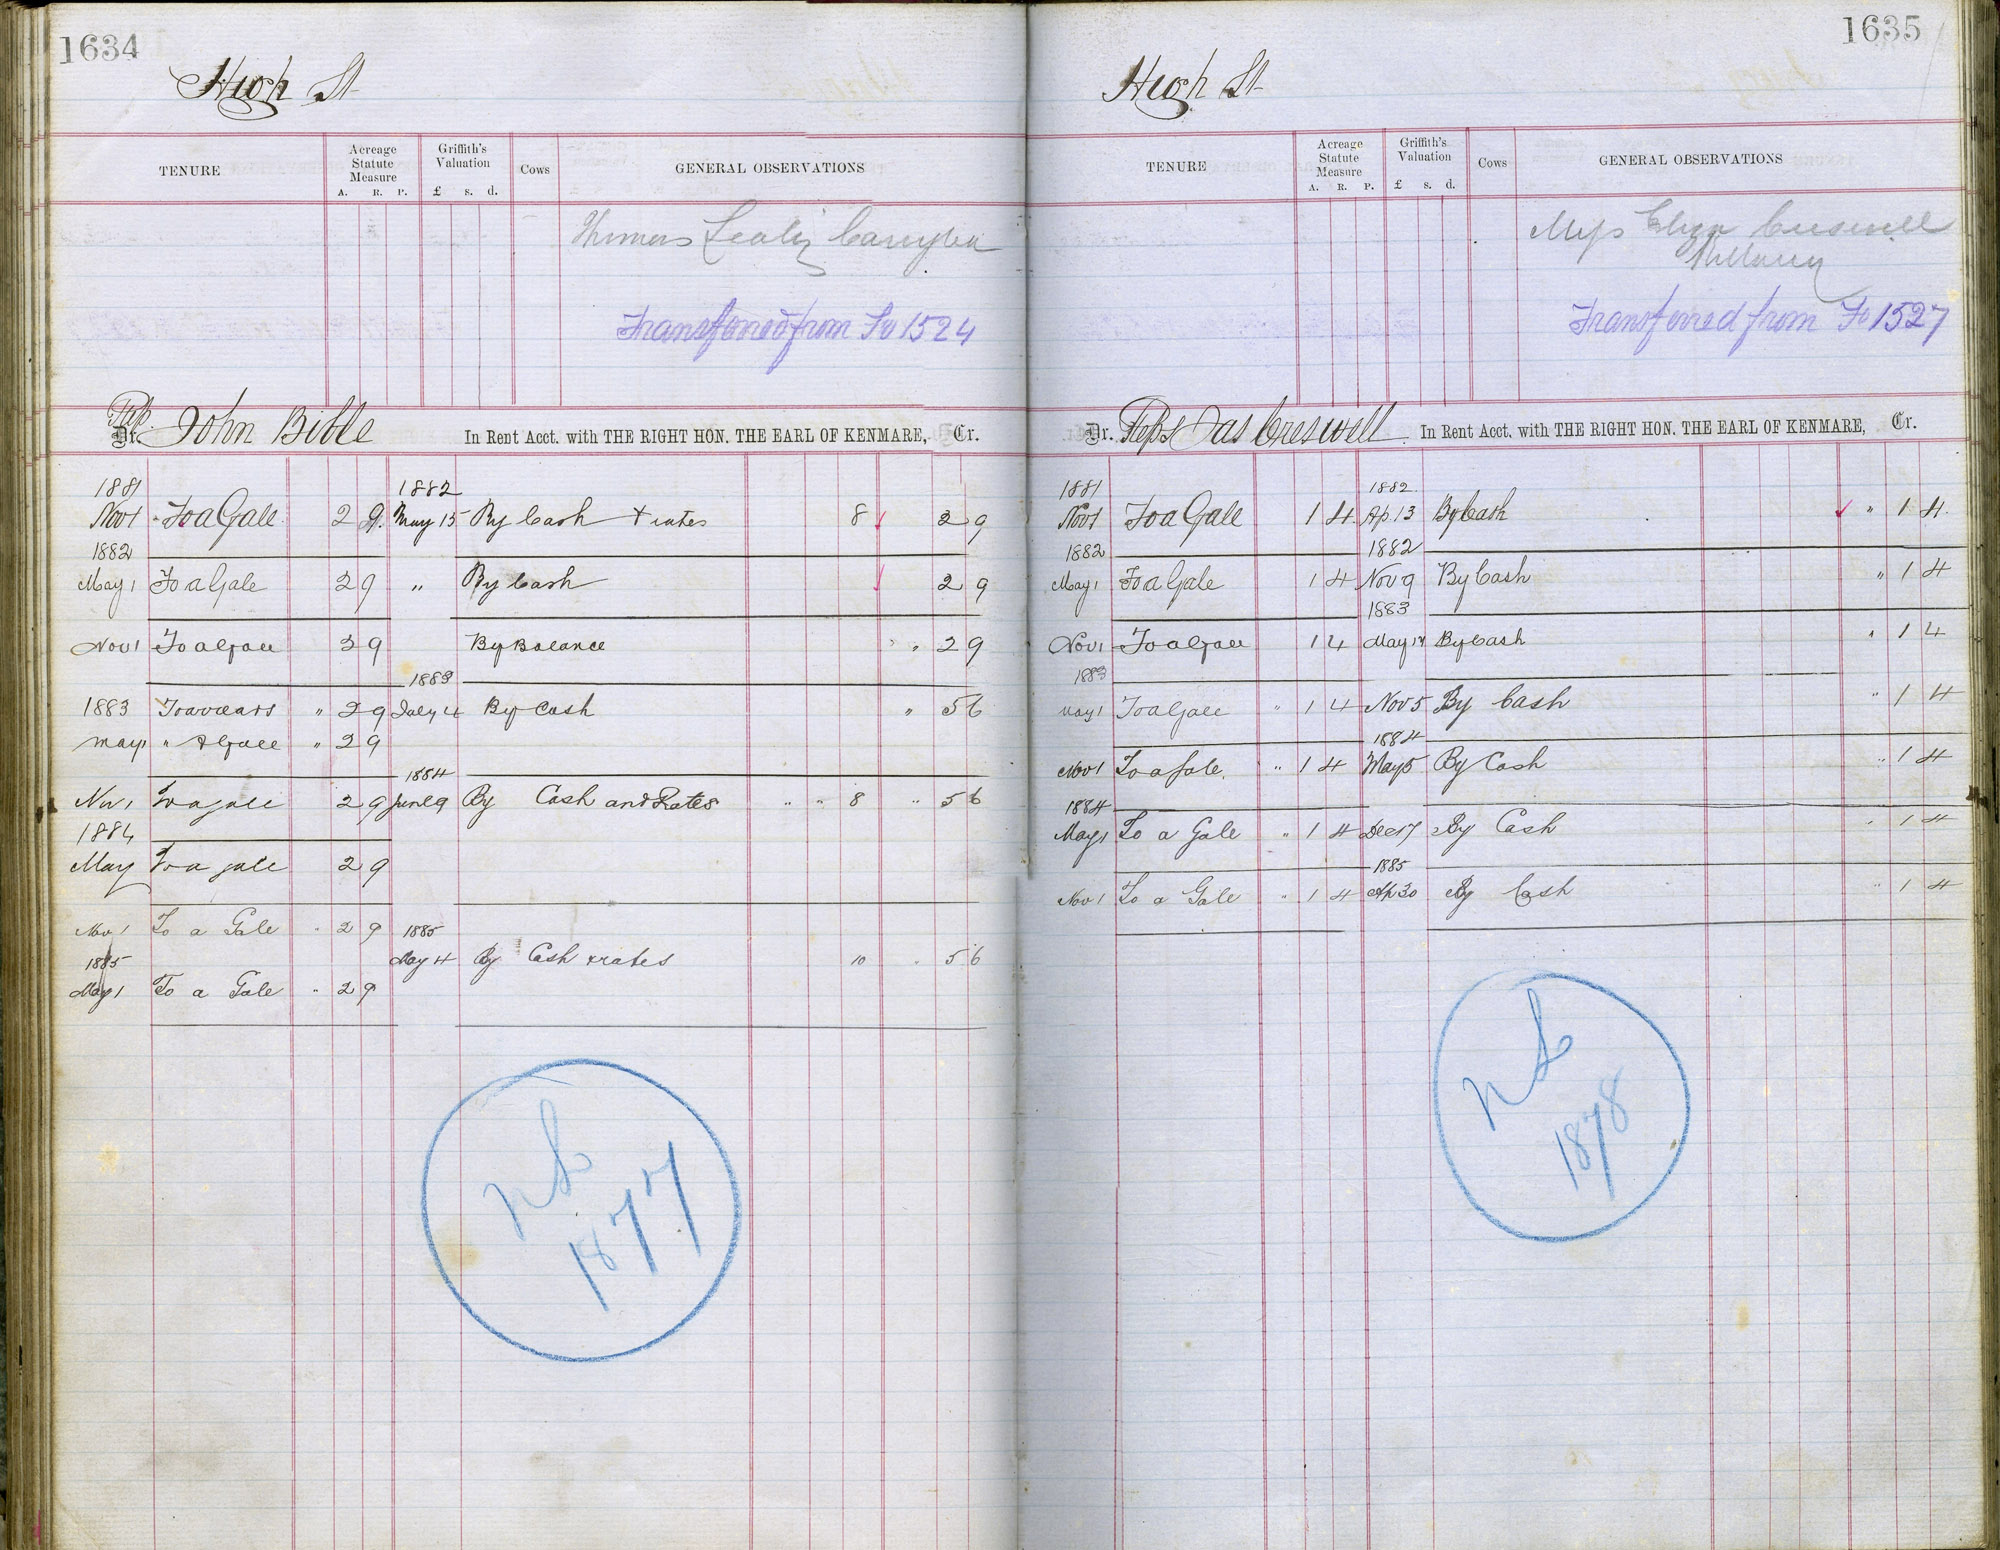 1634
High St
TENURE
Acreage Statute Measure
A. R. P.
Griffith's Valuation
£ s. d.
Cows
GENERAL OBSERVATIONS
Thomas
Transferred from Fo 1524
Dr. Rep John Bible In Rent Acct. with THE RIGHT HON. THE EARL OF KENMARE, Cr.
1881 1882
Nov 1 To a Gale 2 9 May 15 By Cash + rates 8 2 9
1882
May 1 To a Gale 2 9 " By Cash 2 9
Nov 1 To a Gale 2 9 By Balance " 2 9
1883
1883 To arrears " 2 9 July 4 By Cash " 5 6
May 1 " A Gale " 2 9
1884
Nov 1 To a gale 2 9 June 9 By Cash and Rates " " 8 " 5 6
1884
May To a gale 2 9
Nov 1 To a Gale " 2 9 1885
1885 May 4 By Cash & rates 10 " 5 6
May 1 To a Gale " 2 9
NL
1877
1635
High St
TENURE
Acreage Statute Measure
A. R. P.
Griffith's Valuation
£ s. d.
Cows
GENERAL OBSERVATIONS
Miss Creswell
Transferred from Fo 1527
Dr. Reps Jas Creswell In Rent Acct. with THE RIGHT HON. THE EARL OF KENMARE, Cr.
1881 1882
Nov 1 To a Gale 1 4 Ap. 13 By Cash " 1 4
1882 1882
May 1 To a Gale 1 4 Nov 9 By Cash " 1 4
1883
Nov 1 To a Gale 1 4 May By Cash " 1 4
1883
May 1 To a Gale " 1 4 Nov 5 By Cash " 1 4
1884
Nov 1 To a Gale " 1 4 May 5 By Cash " 1 4
1884
May 1 To a Gale " 1 4 Dec 17 By Cash " 1 4
1885
Nov 1 To a Gale " 1 4 Ap 30 By Cash " 1 4
NL
1878